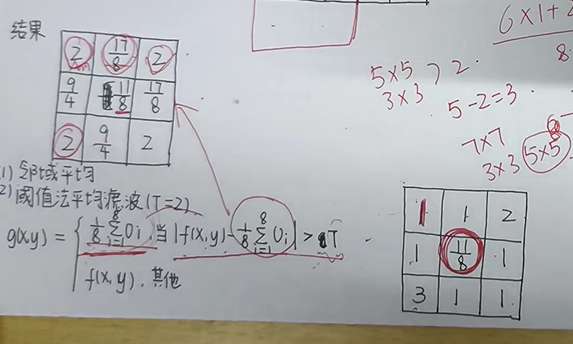 结果
2 17/8 2
9/4 11/8 17/8
2 9/4 2
1) 邻域平均
2) 阈值法平均滤波 (T=2)
g(x,y) = { 1/8 8∑i=1 Oi, 当 |f(x,y) - 1/8 8∑i=1 Oi| > T
f(x,y), 其他
6×1+2
8
5×5 } 2
3×3
5-2=3.
7×7
3×3 5×5
1 1 2
1 11/8 1
3 1 1